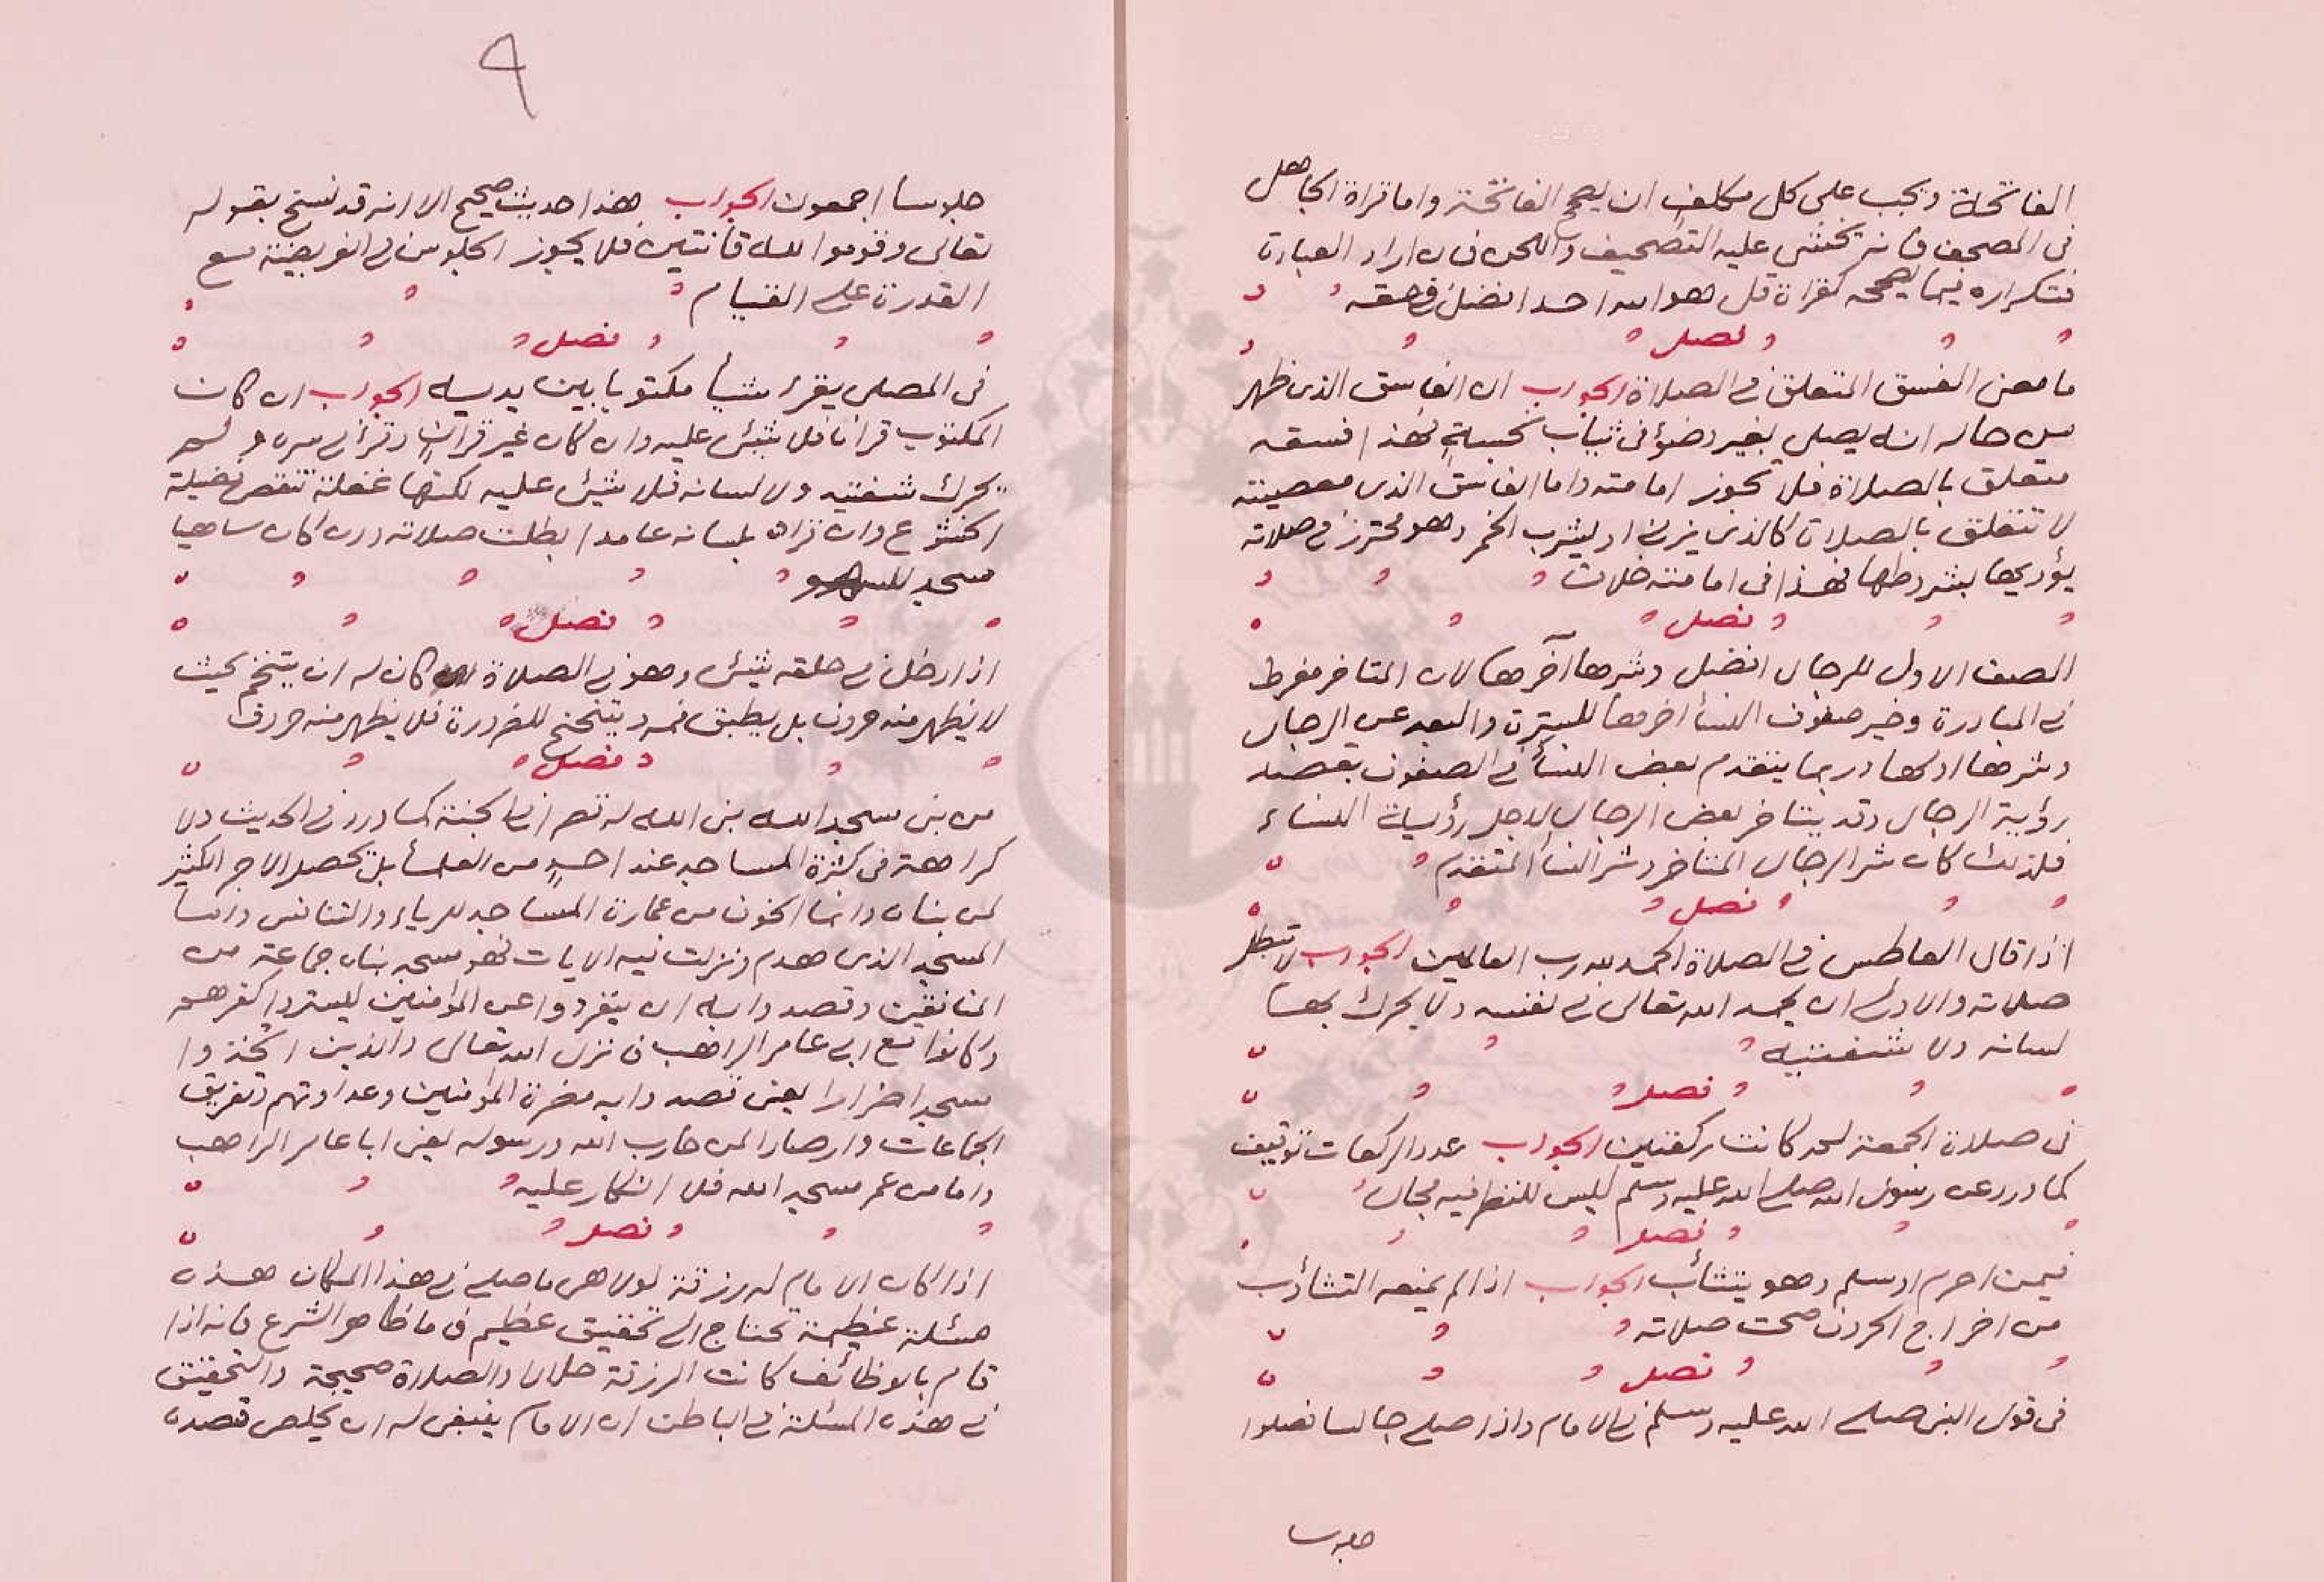 الفاتحة ويجب على كل مكلف ان يصحح الفاتحة واما قراة الجاهل
فى المصحف فانه يخشى عليه التصحيف واللحن فان اراد العبادة
فتكراره فيما يصححه كقراة قل هو الله احد افضل فى حقه
فصل
ما معنى الفسق المتعلق فى الصلاة الجواب ان الفاسق الذى ظهر
من حاله انه يصلى بغير وضؤ فى ثياب نجسة فهذا فسقه
متعلق بالصلاة فلا تجوز امامته واما الفاسق الذى معصيته
لا تتعلق بالصلاة كالذى يزنى او يشرب الخمر وهو محترز فى صلاته
يؤديها بشروطها فهذا فى امامته خلاف
فصل
الصف الاول للرجال افضل وشرها آخرها لان المتاخر مفرط
فى المبادرة وخير صفوف النسأ اخرها للسترة والبعد عن الرجال
وشرها اولها وربما يتقدم بعض النسأ فى الصفوف بقصد
رؤية الرجال وقد يتاخر بعض الرجال لاجل رؤية النساء
فلذلك كان شر الرجال المتاخر وشر النسأ المتقدم
فصل
اذا قال العاطس فى الصلاة الحمد لله رب العالمين الجواب لا تبطل
صلاته والاولى ان يحمد الله تعالى فى نفسه ولا يحرك بها
لسانه ولا شفتيه
فصل
فى صلاة الجمعة لم كانت ركعتين الجواب عدد الركعات توقيف
كما ورد عن رسول الله صلى الله عليه وسلم ليس للنظر فيه مجال
فصل
فيمن احرم او سلم وهو يتثأب الجواب اذا لم يمنعه التثأوب
من اخراج الحروف صحت صلاته
فصل
فى قول النبى صلى الله عليه وسلم فى الامام واذا صلى جالسا فصلوا
جلوسا
٩
جلوسا اجمعون الجواب هذا حديث صحيح الا انه قد نسخ بقوله
تعالى وقوموا لله قانتين فلا يجوز الجلوس فى الفريضة مع
القدرة على القيام
فصل
فى المصلى يقرء شيأ مكتوبا بين يديه الجواب ان كان
المكتوب قرانا فلا شيئ عليه وان كان غير قران وقرأ فى سره ولم
يحرك شفتيه ولا لسانه فلا شيئ عليه لكنها غفلة تنقص فضيلة
الخشوع وان قراه بلسانه عامدا بطلت صلاته وان كان ساهيا
سجد للسهو
فصل
اذا دخل فى حلقه شيئ وهو فى الصلاة كان له ان يتنخم بحيث
لا يظهر منه حروف بل يطبق فمه ويتنحنح للضرورة فلا يظهر منه حروف
فصل
من بنى مسجد الله بنى الله له قصرا فى الجنة كما ورد فى الحديث ولا
كراهة فى كثرة المساجد عند احد من العلمأ بل تحصل الاجر الكثير
لمن بناه وانما الخوف من عمارة المساجد للرياء والتنافس واما
المسجد الذى هدم ونزلت فيه الايات فهو مسجد بناه جماعة من
المنافقين وقصدوا به ان ينفردوا عن المؤمنين ليستروا كفرهم
وكانوا مع ابى عامر الراهب فانزل الله تعالى والذين اتخذوا
مسجدا ضرارا يعنى قصدوا به مضرة المؤمنين وعداوتهم وتفريق
الجماعات وارصادا لمن حارب الله ورسوله يعنى ابا عامر الراهب
واما من عمر مسجد الله فلا انكار عليه
فصل
اذا كان الامام له رزقة لولا هى ما صلى فى هذا المكان هذه
مسئلة عظيمة تحتاج الى تحقيق عظيم فى ما ظاهر الشرع فانه اذا
قام بالوظائف كانت الرزقة حلالا والصلاة صحيحة والتحقيق
فى هذه المسئلة فى الباطن ان الامام ينبغى له ان يخلص قصده